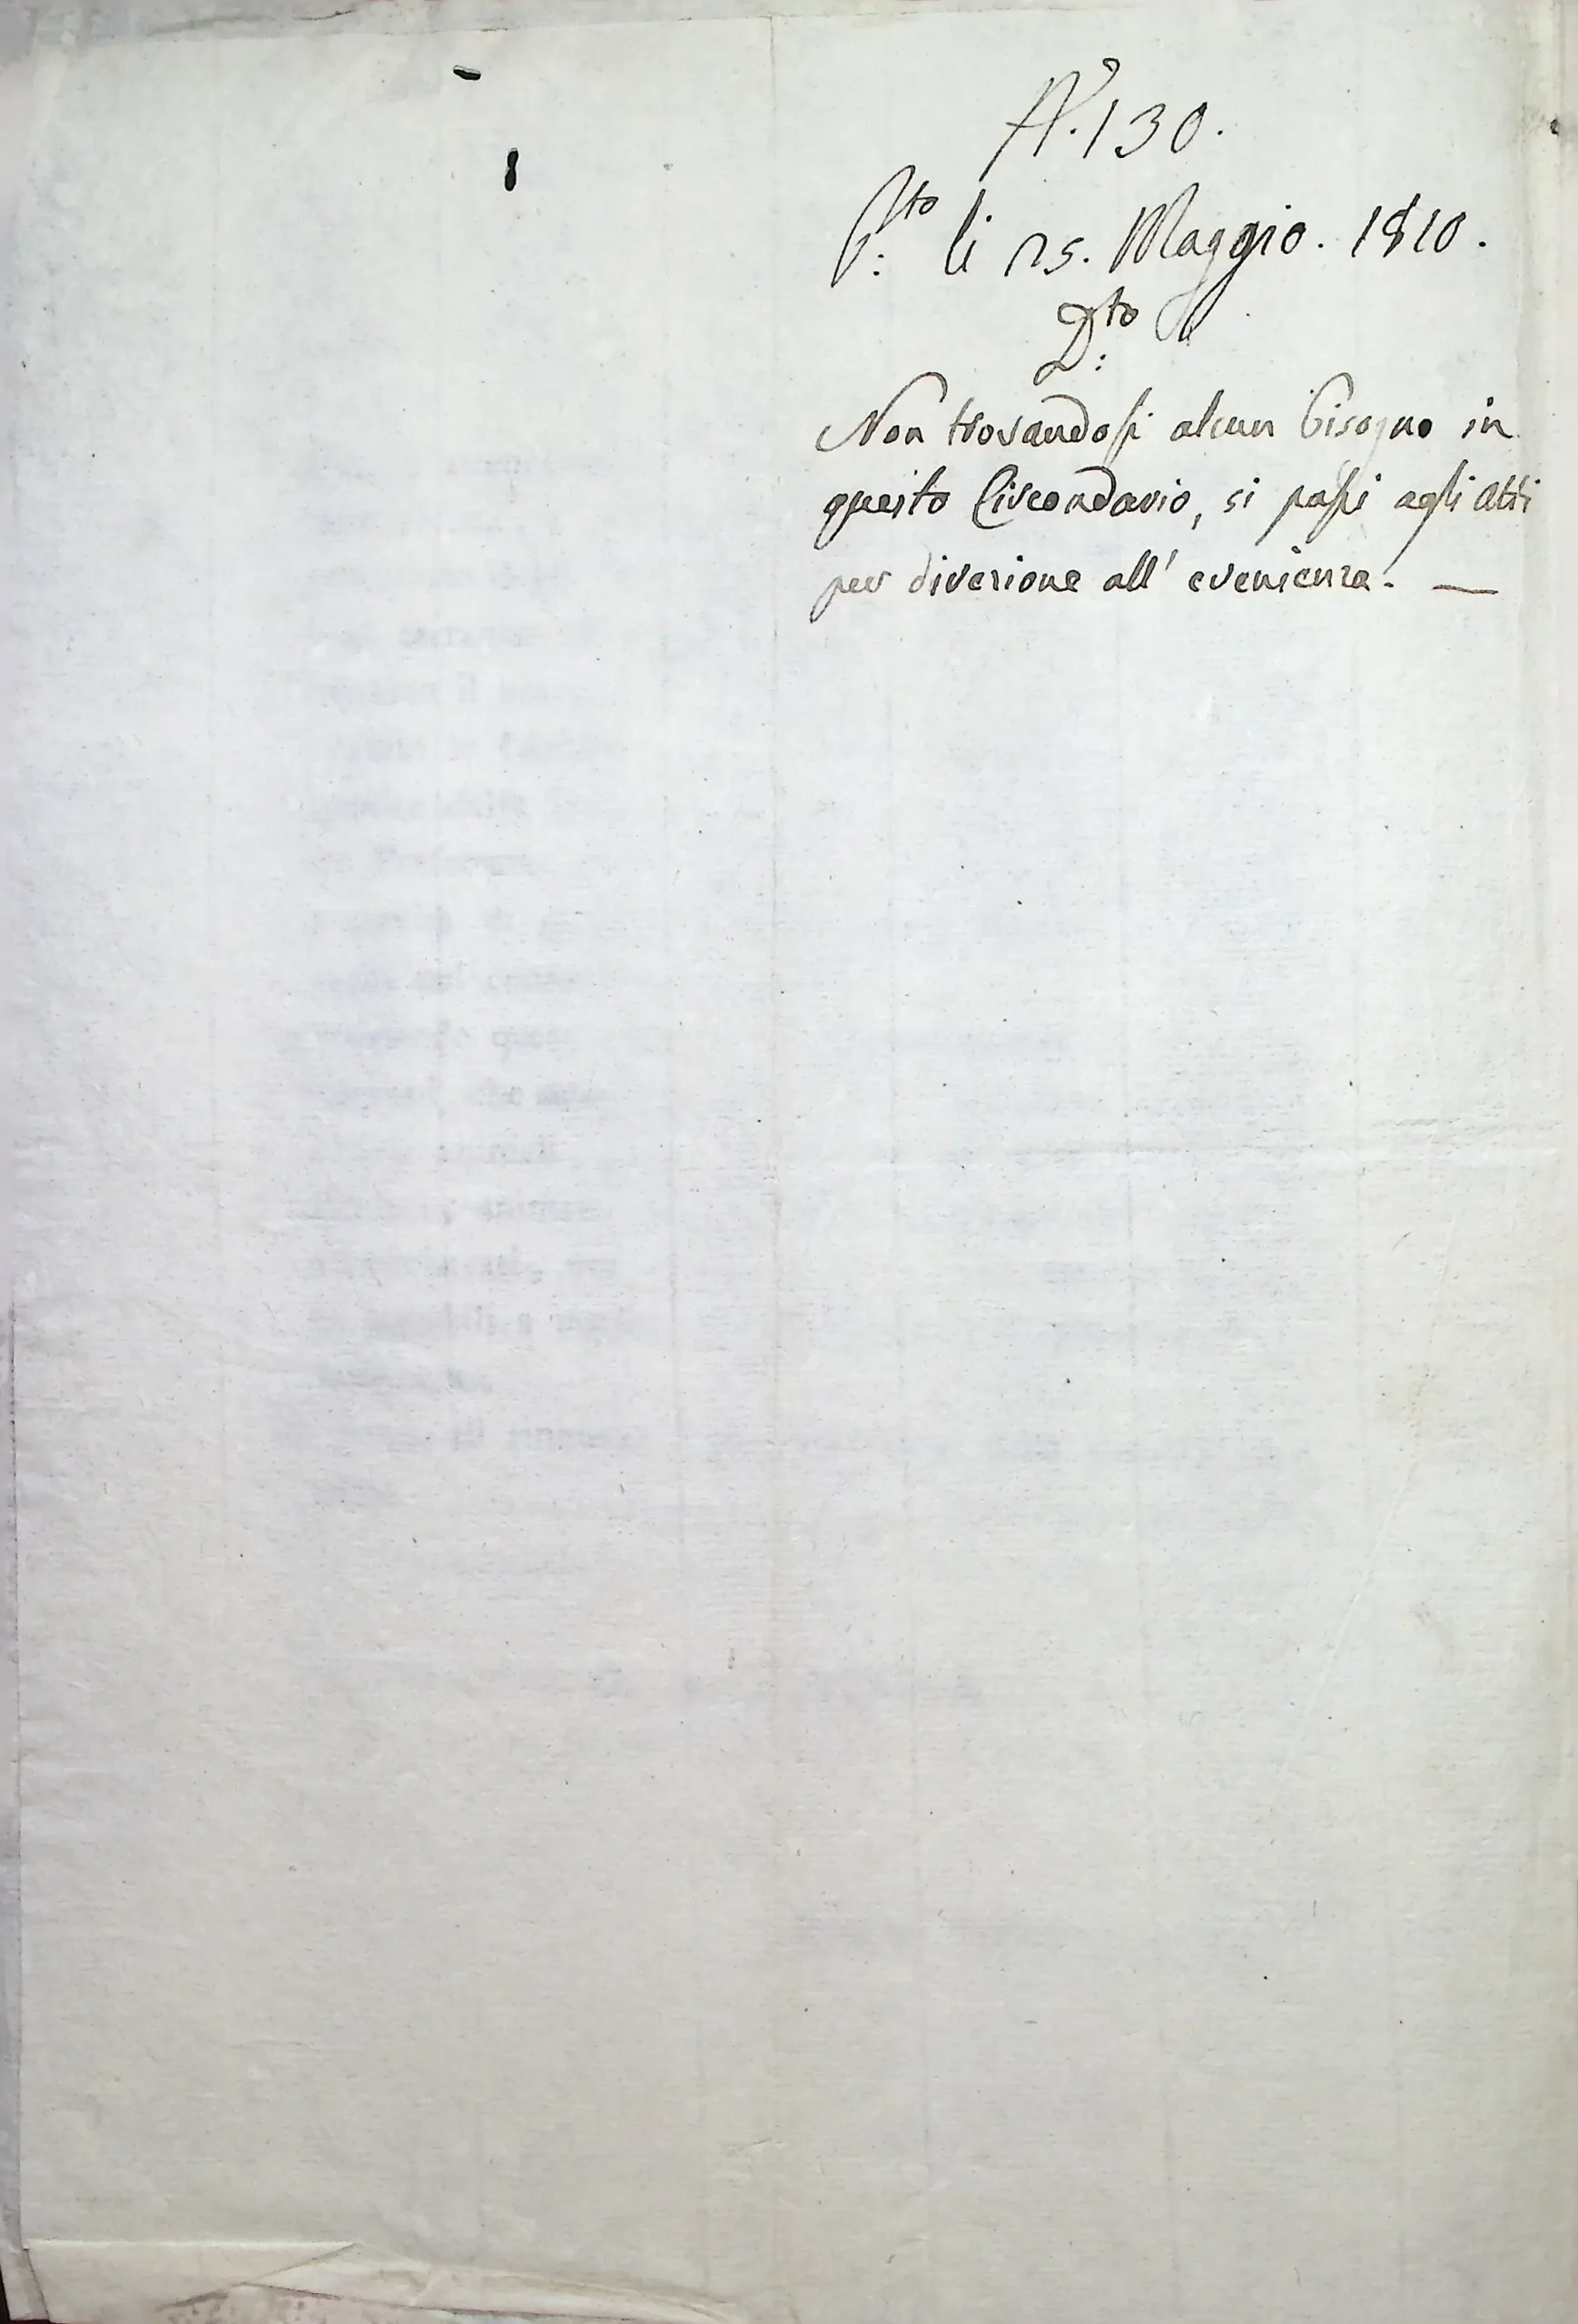 N.° 130.
P:to li 25. Maggio. 1810.
D:to
Non trovandosi alcun bisogno in
questo Circondario, si passi agli Atti
per direzione all' evenienza. —